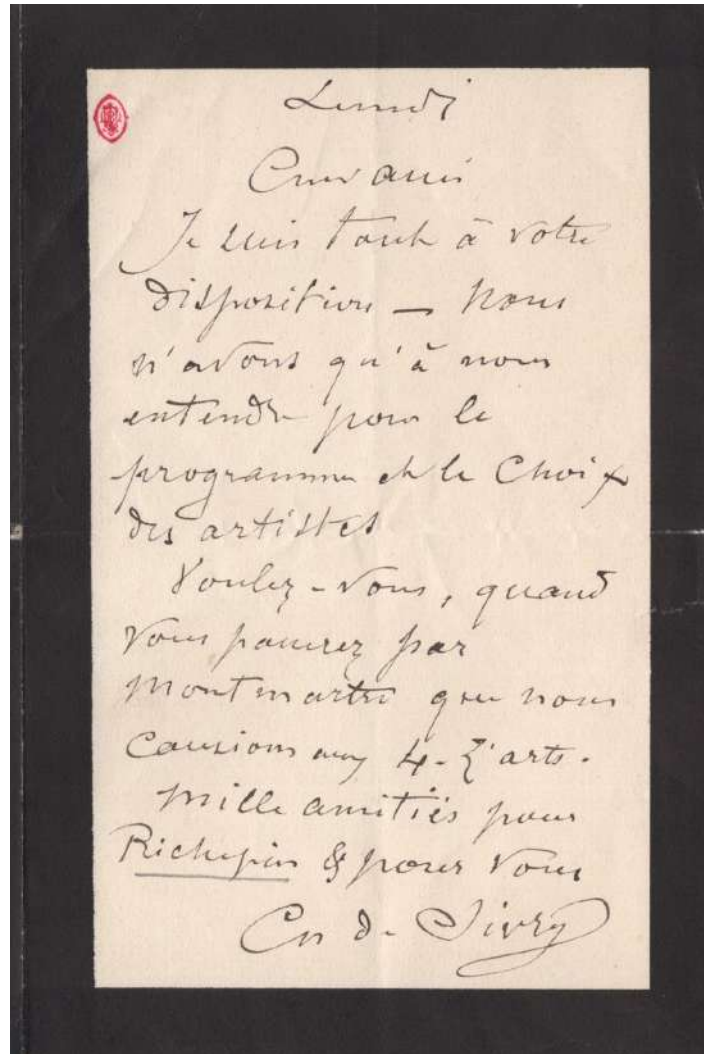 Lundi
Cher ami
Je suis tout à votre
disposition — Nous
n'avons qu'à nous
entendre pour le
programme et le choix
des artistes
Voulez-vous, quand
vous passerez par
Montmartre que nous
causions aux 4-Z'arts.
Mille amitiés pour
Richepin & pour vous
Ch de Sivry